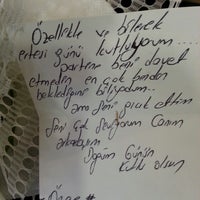 Özellikle ve bilerek
ertesi günü kutluyorum...
partene beni davet
etmeden en çok benden
beklediğini biliyordum...
ama seni çok
Seni Çok Seviyorum Canım
arkadaşım
Doğum Günün
Kutlu olsun